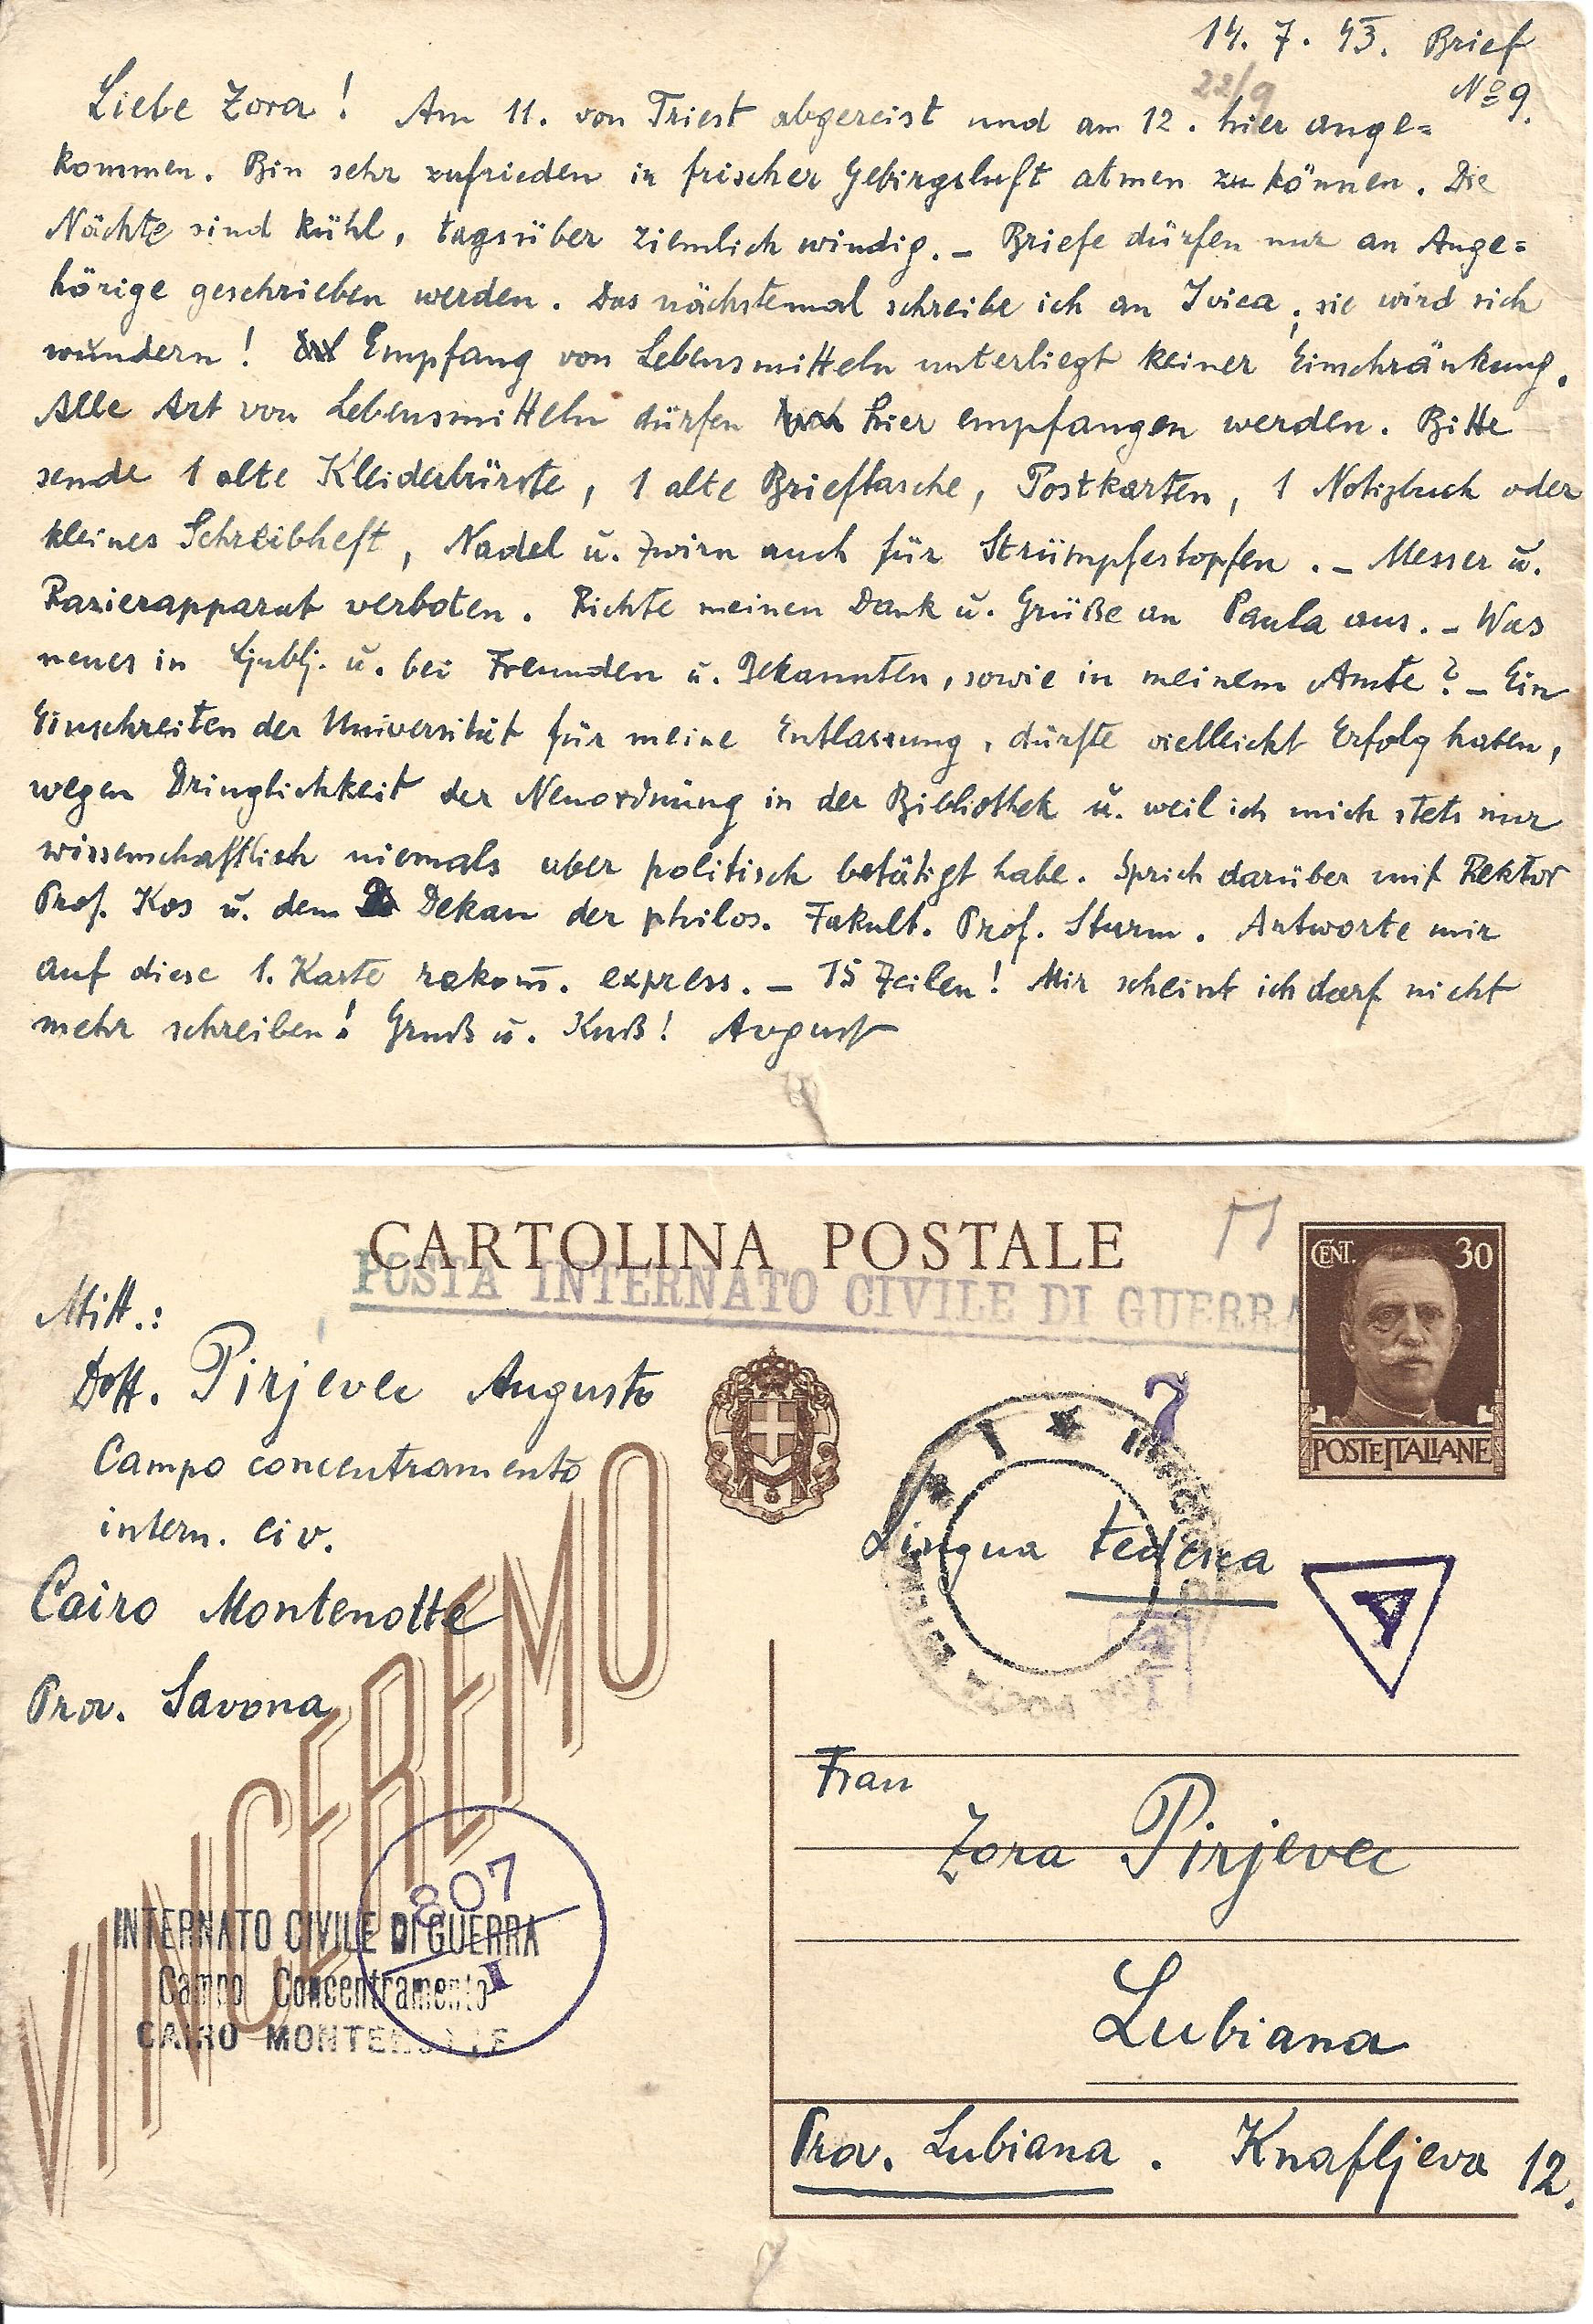 14. 7. 43. Brief
22/9
Nº 9.
Liebe Zora! Am 11. von Triest abgereist und am 12. hier ange=
kommen. Bin sehr zufrieden in frischer Gebirgsluft atmen zu können. Die
Nächte sind kühl, tagsüber ziemlich windig. – Briefe dürfen nur an Ange=
hörige geschrieben werden. Das nächstemal schreibe ich an Ivica, sie wird sich
wundern! Empfang von Lebensmitteln unterliegt keiner Einschränkung.
Alle Art von Lebensmitteln dürfen hier empfangen werden. Bitte
sende 1 alte Kleiderbürste, 1 alte Brieftasche, Postkarten, 1 Notizbuch oder
kleines Schreibheft, Nadel u. Zwirn auch für Strümpfestopfen. – Messer u.
Rasierapparat verboten. Richte meinen Dank u. Grüße an Paula aus. – Was
neues in Ljublj. u. bei Freunden u. Bekannten, sowie in meinem Amte? – Ein
Einschreiten der Universität für meine Entlassung, dürfte vielleicht Erfolg haben,
wegen Dringlichkeit der Neuordnung in der Bibliothek u. weil ich mich stets nur
wissenschaftlich niemals aber politisch betätigt habe. Sprich darüber mit Rektor
Prof. Kos u. dem Dekan der philos. Fakult. Prof. Sturm. Antworte mir
auf diese 1. Karte rekom̄. express. – 15 Zeilen! Mir scheint ich darf nicht
mehr schreiben! Gruß u. Kuß! August
CARTOLINA POSTALE
POSTA INTERNATO CIVILE DI GUERRA
CENT. 30
POSTE ITALIANE
Mitt.:
Dott. Pirjevec Augusto
Campo concentramento
intern. civ.
Cairo Montenotte
Prov. Savona
VINCEREMO
7
Lingua tedesca
A
807
I
INTERNATO CIVILE DI GUERRA
Campo Concentramento
CAIRO MONTENOTTE
Frau
Zora Pirjevec
Lubiana
Prov. Lubiana. Knafljeva 12.